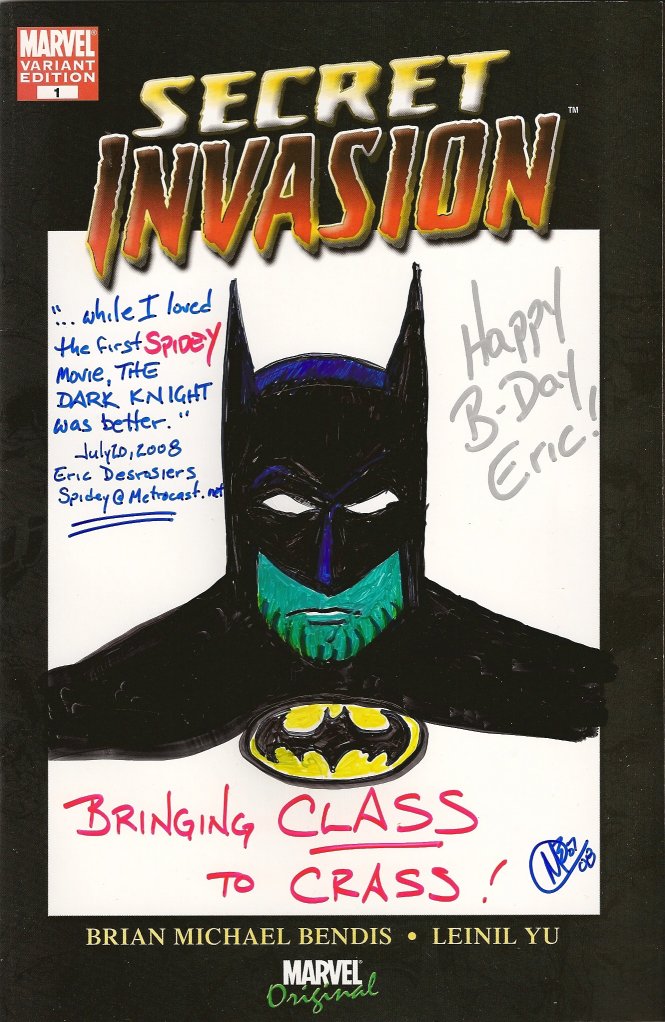 MARVEL
VARIANT
EDITION
1
SECRET
INVASION
TM
"... while I loved
the first SPIDEY
Movie, THE
DARK KNIGHT
was better."
July 20, 2008
Eric Desrosiers
Spidey@Metrocast.net
Happy
B-Day
Eric!
BRINGING CLASS
TO CRASS!
08
BRIAN MICHAEL BENDIS • LEINIL YU
MARVEL
Original